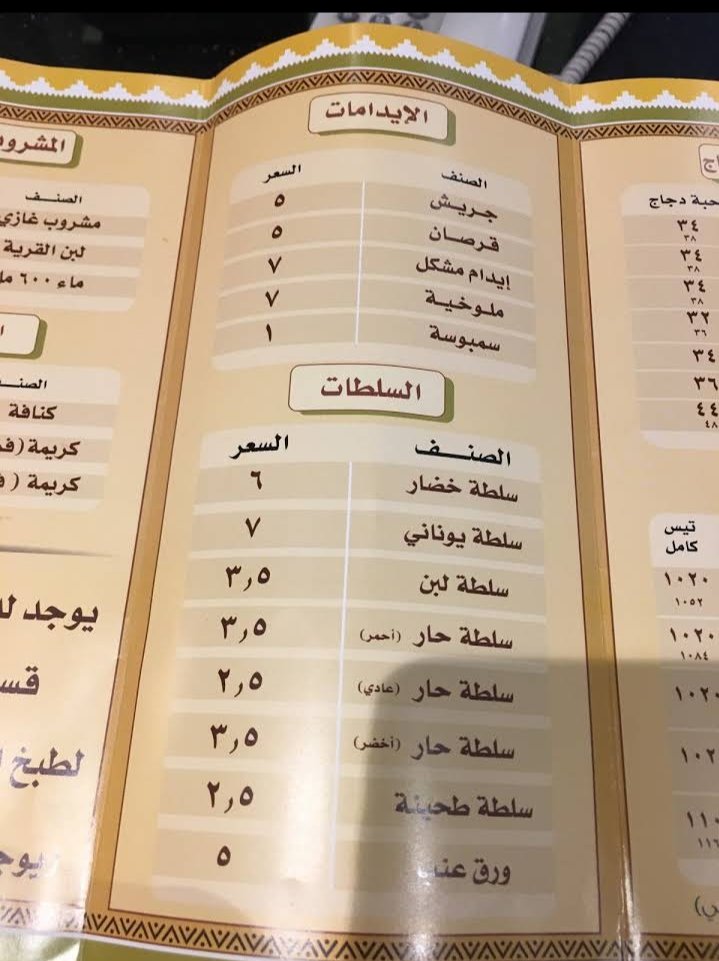 الإيدامات
الصنف السعر
جريش ٥
قرصان ٥
إيدام مشكل ٧
ملوخية ٧
سمبوسة ١
السلطات
الصنـــف السعر
سلطة خضار ٦
سلطة يوناني ٧
سلطة لبن ٣,٥
سلطة حار (أحمر) ٣,٥
سلطة حار (عادي) ٢,٥
سلطة حار (أخضر) ٣,٥
سلطة طحينة ٢,٥
ورق عنب ٥
حبة دجاج
٣٤
٣٨
٣٤
٣٨
٣٤
٣٨
٣٢
٣٦
٣٤
٣٦
٤٤
٤٨
تيس
كامل
١٠٢٠
١٠٥٢
١٠٢٠
١٠٨٤
١٠٢٠
الصنــف
مشروب غازي
لبن القرية
ماء ٦٠٠
كنافة
كريمة
كريمة
يوجد
لطبخ